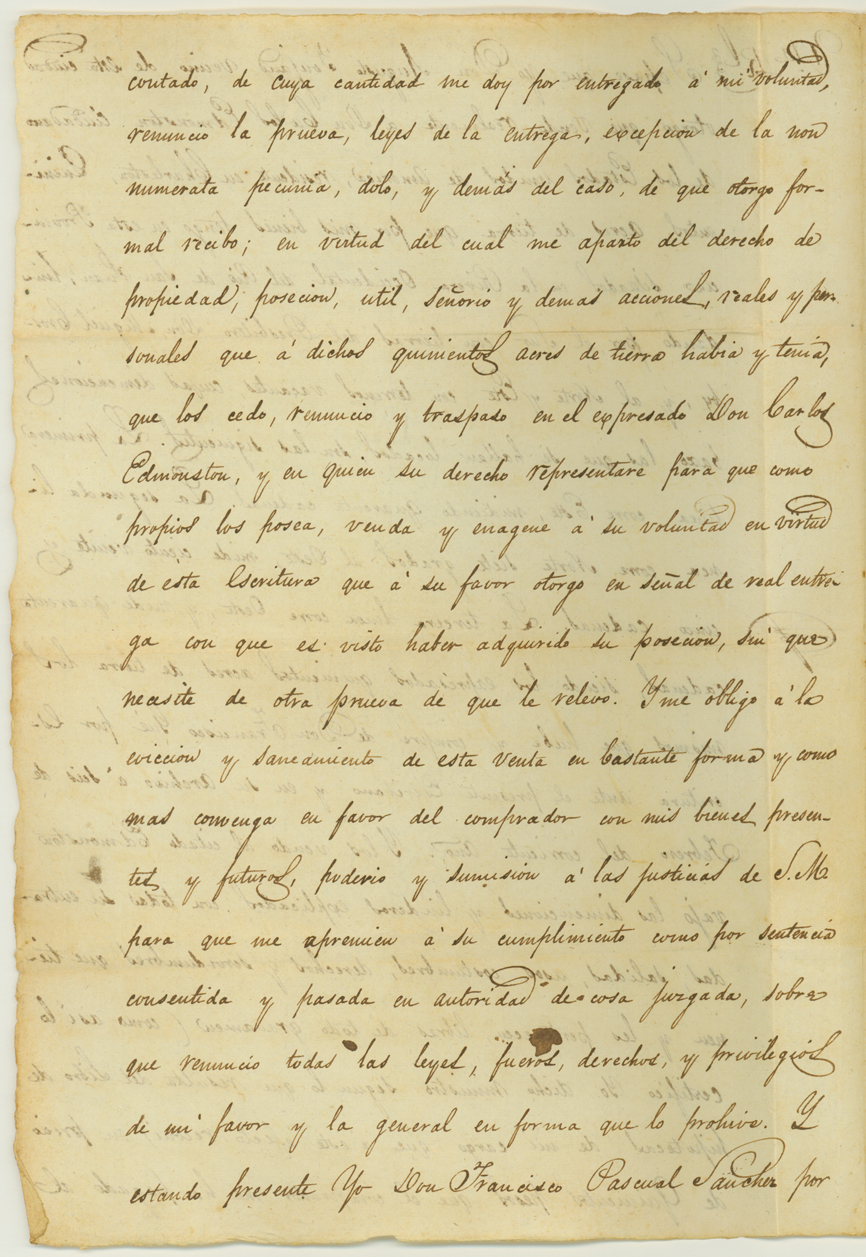 contado, de cuya cantidad me doy por entregado á mi voluntad,
renuncio la prueva, leyes de la entrega, excepcion de la non
numerata pecunia, dolo, y demás del caso, de que otorgo for-
mal recibo; en virtud del cual me aparto del derecho de
propiedad, posecion, util, señorio y demas acciones, reales y per-
sonales que á dichos quinientos acres de tierra habia y tenia,
que los cedo, renuncio y traspaso en el expresado Don Carlos
Edmonston, y en quien su derecho representare para que como
propios los posea, venda y enagene á su voluntad en virtud
de esta Escritura que á su favor otorgo en señal de real entre-
ga con que es visto haber adquirido su posecion, sin que
necesite de otra prueva de que le relevo. Y me obligo á la
eviccion y saneamiento de esta venta en bastante forma y como
mas convenga en favor del comprador con mis bienes presen-
tes y futuros, poderio y sumision á las justicias de S.M
para que me apremien á su cumplimiento como por sentencia
consentida y pasada en autoridad de cosa juzgada, sobre
que renuncio todas las leyes, fueros, derechos, y privilegios
de mi favor y la general en forma que lo prohive. Y
estando presente Yo Don Francisco Pascual Sanchez por